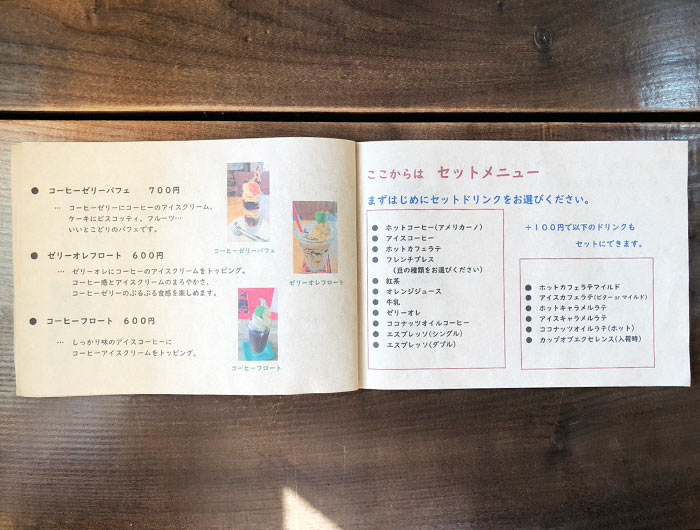 ● コーヒーゼリーパフェ 700円
… コーヒーゼリーにコーヒーのアイスクリーム、
ケーキにビスコッティ、フルーツ…
いいとこどりのパフェです。
コーヒーゼリーパフェ
● ゼリーオレフロート 600円
… ゼリーオレにコーヒーのアイスクリームをトッピング。
コーヒー感とアイスクリームのまろやかさ、
コーヒーゼリーのぷるぷる食感を楽しめます。
ゼリーオレフロート
● コーヒーフロート 600円
… しっかり味のアイスコーヒーに
コーヒーアイスクリームをトッピング。
コーヒーフロート
ここからは セットメニュー
まずはじめにセットドリンクをお選びください。
● ホットコーヒー(アメリカーノ)
● アイスコーヒー
● ホットカフェラテ
● フレンチプレス
(豆の種類をお選びください)
● 紅茶
● オレンジジュース
● 牛乳
● ゼリーオレ
● ココナッツオイルコーヒー
● エスプレッソ(シングル)
● エスプレッソ(ダブル)
+100円で以下のドリンクも
セットにできます。
● ホットカフェラテマイルド
● アイスカフェラテ(ビター or マイルド)
● ホットキャラメルラテ
● アイスキャラメルラテ
● ココナッツオイルラテ(ホット)
● カップオブエクセレンス(入荷時)